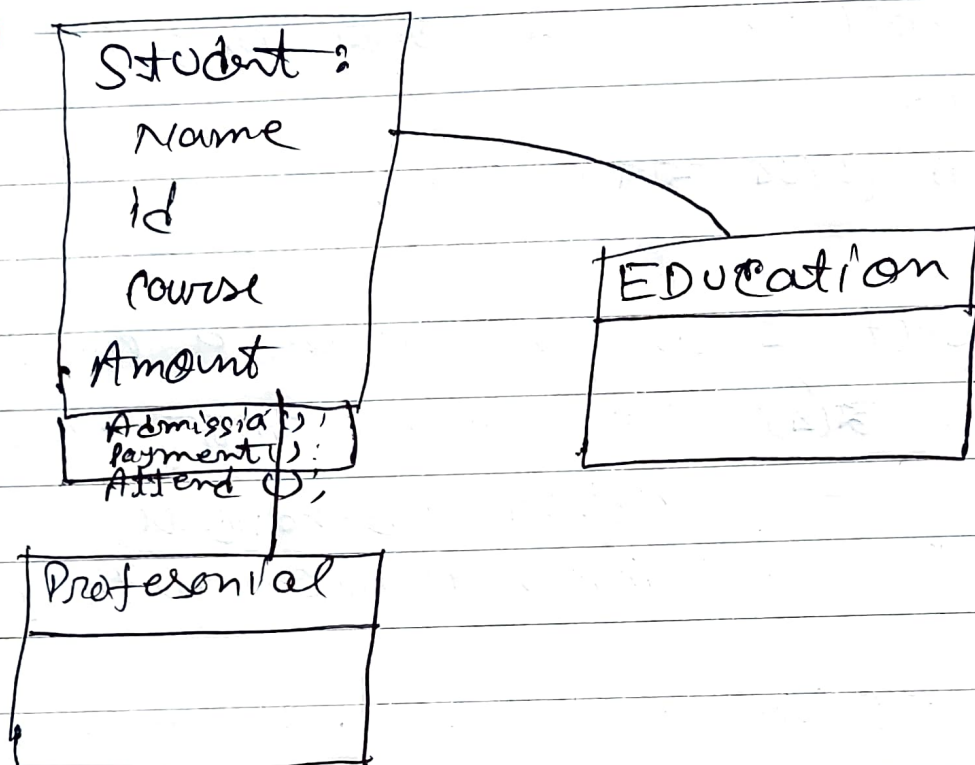 Student :
Name
Id
course
Amount
Admissia ();
Payment () :
Attend ();
EDUcation
Profesonial